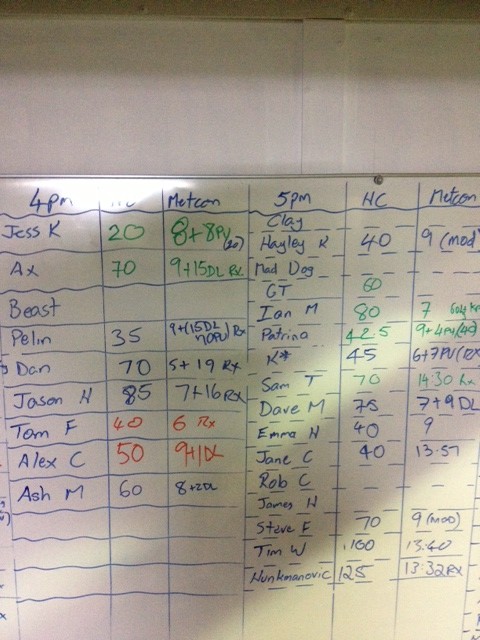 4pm HC Metcon
Jess K 20 8+8PU (20)
Ax 70 9+15DL Rx
Beast
Pelin 35 8+(15DL Rx
Dan 70 5+19 Rx
Jason H 85 7+16 Rx
Tom F 40 6 Rx
Alex C 50
Ash M 60 8+2DL
5pm HC Metcon
Clay
Hayley K 40 9 (mod)
Mad Dog
GT 60
Ian M 80 7
Patrina 42.5
K* 45
Sam T 70 14:30 Rx
Dave M 75 7+9 DL
Emma H 40 9
Jane C 40 13:57
Rob C – –
James H
Steve F 70 9 (mod)
Tim W 100 13:40
Nunkmanovic 125 13:32 Rx